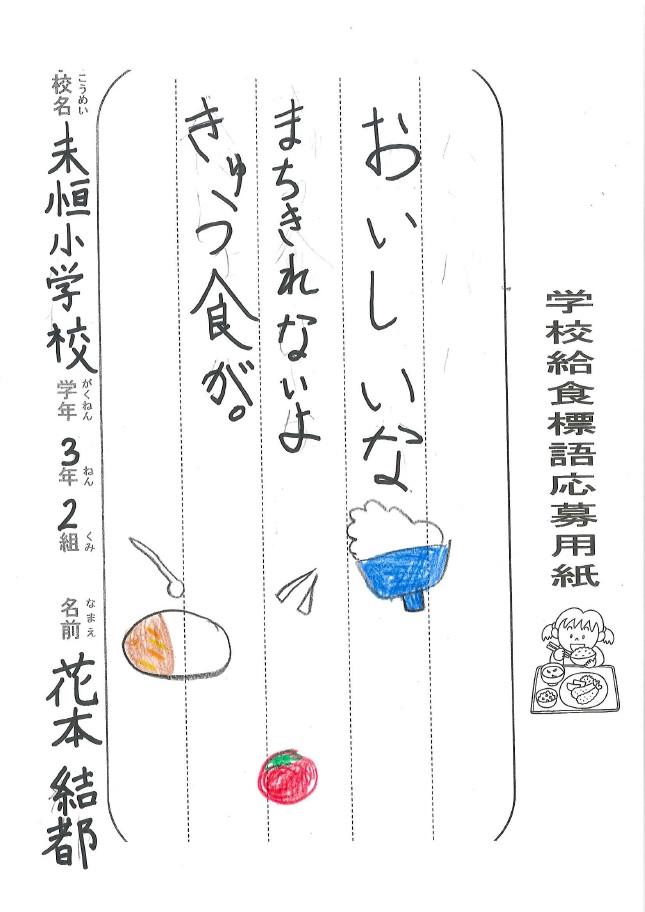 学校給食標語応募用紙
おいしいな
まちきれないよ
きゅう食が。
校名 未恒小学校 学年 3年 2組 名前 花本 結都
こうめい がくねん ねん くみ なまえ